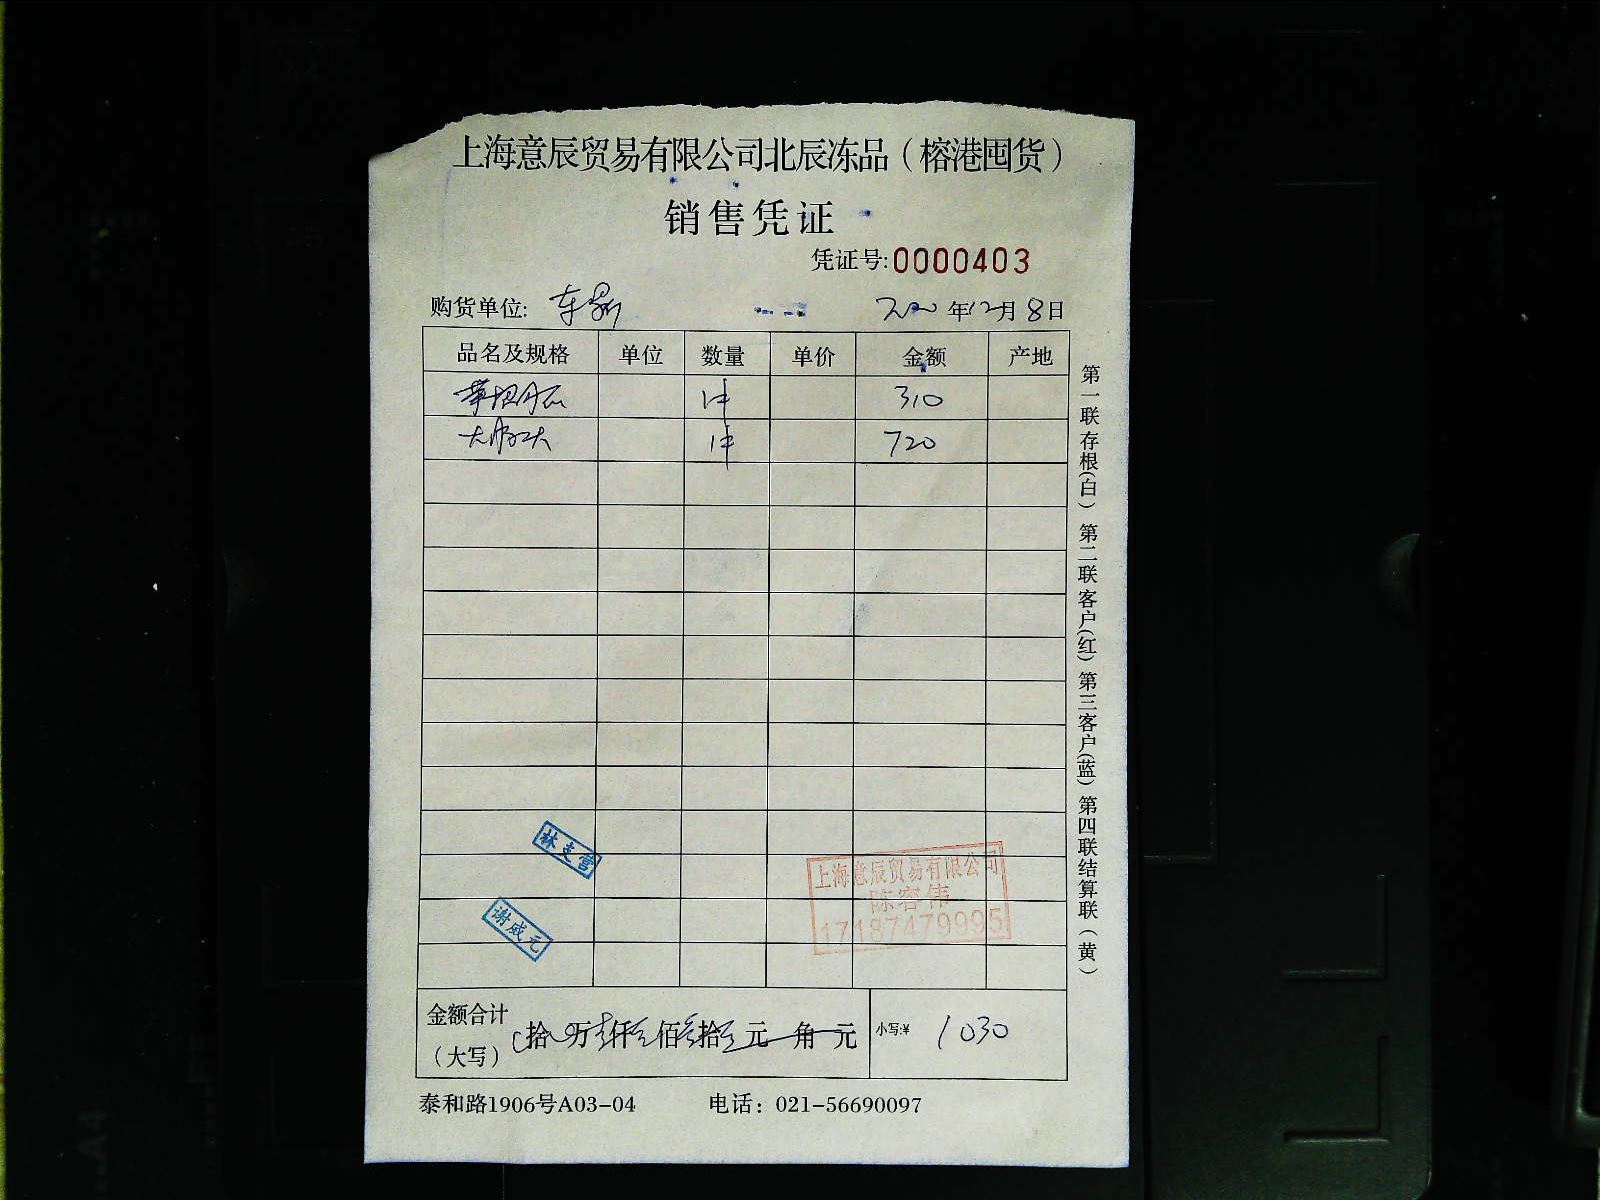 上海意辰贸易有限公司北辰冻品（榕港囤货）
销售凭证
凭证号:0000403
购货单位: 年12月8日
品名及规格 单位 数量 单价 金额 产地
1件 310
1件 720
林支营
谢威元
上海意辰贸易有限公司
陈容伟
17187479995
金额合计（大写） 拾 万 仟 佰 拾 元 角 元 小写:¥ 1030
泰和路1906号A03-04 电话：021-56690097
第一联存根(白) 第二联客户(红) 第三客户(蓝) 第四联结算联(黄)